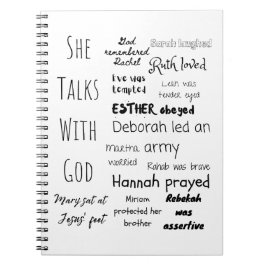 She
Talks
With
God
Mary sat at
Jesus' feet
God
remembered
Rachel
Sarah laughed
Ruth loved
Eve was
tempted
Leah was
tender eyed
ESTHER obeyed
Deborah led an
army
martha
worried
Rahab was brave
Hannah prayed
Miriam
protected her
brother
Rebekah
was
assertive